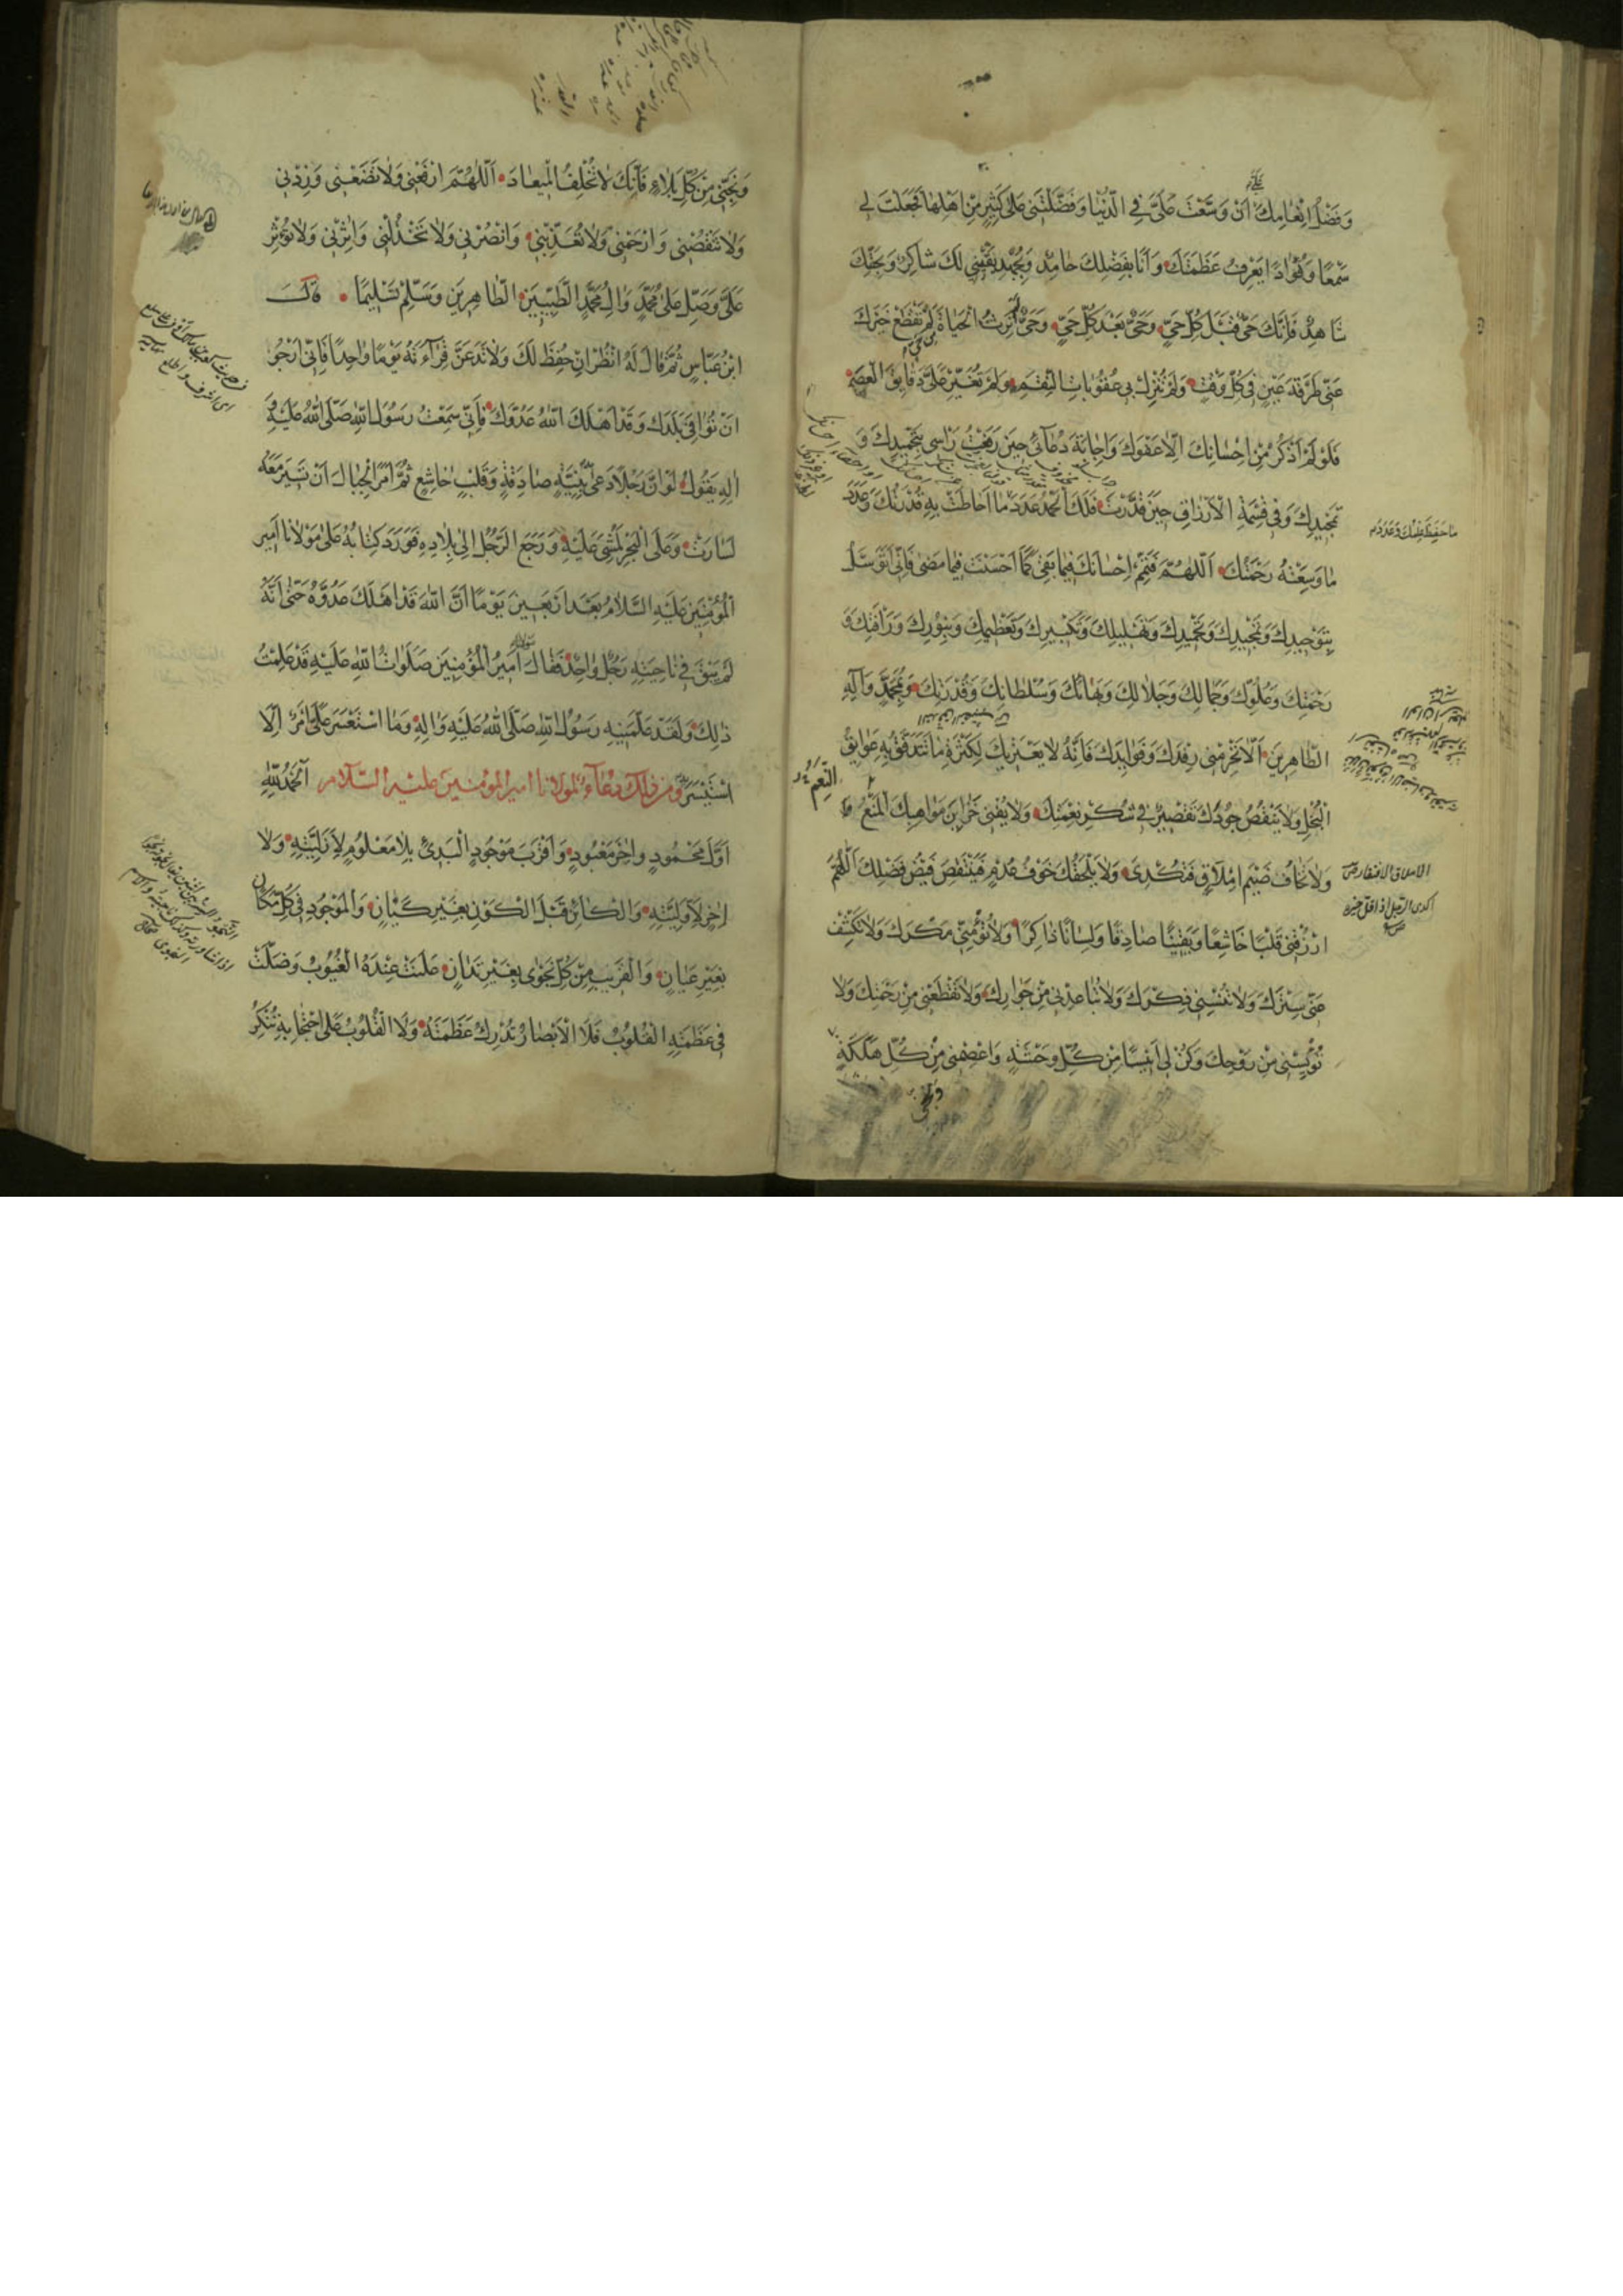 وَفَضْلُ اِنْعَامِكَ اَنْ وَسَّعْتَ عَلَيَّ فِي الدُّنْيَا وَفَضَّلْتَنِي عَلىٰ كَثِيرٍ مِنْ اَهْلِهَا فَجَعَلْتَ لِي
سَمْعًا وَفُؤَادًا يَعْرِفُ عَظَمَتَكَ وَاَنَا بِفَضْلِكَ حَامِدٌ وَبِجُهْدِ نَفْسِي لَكَ شَاكِرٌ وَبِحَقِّكَ
شَاهِدٌ فَاِنَّكَ حَيٌّ قَبْلَ كُلِّ حَيٍّ وَحَيٌّ بَعْدَ كُلِّ حَيٍّ وَحَيٌّ تَرِثُ الْحَيَاةَ لَمْ تَقْطَعْ خَيْرَكَ
عَنِّي طَرْفَةَ عَيْنٍ فِي كُلِّ وَقْتٍ وَلَمْ تُنْزِلْ بِي عُقُوبَاتِ النِّقَمِ وَلَمْ تُغَيِّرْ عَلَيَّ دَقَايِقَ الْعِصَمِ
فَلَوْ لَمْ اَذْكُرْ مِنْ اِحْسَانِكَ اِلَّا عَفْوَكَ وَاِجَابَةَ دُعَائِي حِينَ رَفَعْتُ رَاْسِي بِتَحْمِيدِكَ وَ
تَمْجِيدِكَ وَفِي قِسْمَةِ الْاَرْزَاقِ حِينَ قَدَّرْتَ فَلَكَ الْحَمْدُ عَدَدَ مَا اَحَاطَتْ بِهِ قُدْرَتُكَ وَعَدَدَ
مَا حَفِظَ عِلْمُكَ وَعَدَدَ
مَا وَسِعَتْهُ رَحْمَتُكَ اَللّٰهُمَّ فَتَمِّمْ اِحْسَانَكَ فِيمَا بَقِيَ كَمَا اَحْسَنْتَ فِيمَا مَضىٰ فَاِنِّي اَتَوَسَّلُ
بِتَوْحِيدِكَ وَتَمْجِيدِكَ وَتَحْمِيدِكَ وَتَهْلِيلِكَ وَتَكْبِيرِكَ وَتَعْظِيمِكَ وَبِنُورِكَ وَرَاْفَتِكَ وَ
رَحْمَتِكَ وَعُلُوِّكَ وَجَمَالِكَ وَجَلَالِكَ وَبَهَائِكَ وَسُلْطَانِكَ وَقُدْرَتِكَ وَبِمُحَمَّدٍ وَآلِهِ
الطَّاهِرِينَ اَلَّا تَحْرِمَنِي رِفْدَكَ وَفَوَايِدَكَ فَاِنَّهُ لَا يَعْتَرِيكَ لِكَثْرَةِ مَا تَتَدَفَّقُ بِهِ عَوَايِقُ
الْبُخْلِ وَلَا يَنْقُصُ جُودَكَ تَقْصِيرٌ فِي شُكْرِ نِعْمَتِكَ وَلَا يُفْنِي خَزَايِنَ مَوَاهِبِكَ الْمَنْعُ
وَلَا تَخَافُ ضَيْمَ اِمْلَاقٍ فَتُكْدِيَ وَلَا يَلْحَقُكَ خَوْفُ عُدْمٍ فَيَنْقُصَ فَيْضُ فَضْلِكَ اَللّٰهُمَّ
الاملاق الافتقار ص
اكدى الرجل اذا قل خيره
ارْزُقْنِي قَلْبًا خَاشِعًا وَيَقِينًا صَادِقًا وَلِسَانًا ذَاكِرًا وَلَا تُؤْمِنِّي مَكْرَكَ وَلَا تَكْشِفْ
عَنِّي سِتْرَكَ وَلَا تُنْسِنِي ذِكْرَكَ وَلَا تُبَاعِدْنِي مِنْ جِوَارِكَ وَلَا تَقْطَعْنِي مِنْ رَحْمَتِكَ وَلَا
تُؤْيِسْنِي مِنْ رَوْحِكَ وَكُنْ لِي اَنِيسًا مِنْ كُلِّ وَحْشَةٍ وَاعْصِمْنِي مِنْ كُلِّ هَلَكَةٍ
وَنَجِّنِي مِنْ كُلِّ بَلَاءٍ فَاِنَّكَ لَا تُخْلِفُ الْمِيعَادَ اَللّٰهُمَّ ارْفَعْنِي وَلَا تَضَعْنِي وَزِدْنِي
وَلَا تَنْقُصْنِي وَارْحَمْنِي وَلَا تُعَذِّبْنِي وَانْصُرْنِي وَلَا تَخْذُلْنِي وَاٰثِرْنِي وَلَا تُؤْثِرْ
عَلَيَّ وَصَلِّ عَلىٰ مُحَمَّدٍ وَاٰلِ مُحَمَّدٍ الطَّيِّبِينَ الطَّاهِرِينَ وَسَلِّمْ تَسْلِيمًا قَالَ
ابْنُ عَبَّاسٍ ثُمَّ قَالَ لَهُ انْظُرْ اِنْ حُفِظَ لَكَ وَلَا تَدَعَنَّ قِرَاءَتَهُ يَوْمًا وَاحِدًا فَاِنِّي اَرْجُو
اَنْ تُوَافِيَ بَلَدَكَ وَقَدْ اَهْلَكَ اللّٰهُ عَدُوَّكَ فَاِنِّي سَمِعْتُ رَسُولَ اللّٰهِ صَلَّى اللّٰهُ عَلَيْهِ وَ
اٰلِهِ يَقُولُ لَوْ اَنَّ رَجُلًا دَعَا بِنِيَّةٍ صَادِقَةٍ وَقَلْبٍ خَاشِعٍ ثُمَّ اَمَرَ الْجِبَالَ اَنْ تَسِيرَ مَعَهُ
لَسَارَتْ وَعَلَى الْبَحْرِ لَمَشىٰ عَلَيْهِ وَرَجَعَ الرَّجُلُ اِلىٰ بِلَادِهِ فَوَرَدَ كِتَابُهُ عَلىٰ مَوْلَانَا اَمِيرِ
الْمُؤْمِنِينَ عَلَيْهِ السَّلَامُ بَعْدَ اَرْبَعِينَ يَوْمًا اَنَّ اللّٰهَ قَدْ اَهْلَكَ عَدُوَّهُ حَتّٰى اَنَّهُ
لَمْ يَبْقَ فِي نَاحِيَتِهِ رَجُلٌ وَاحِدٌ فَقَالَ اَمِيرُ الْمُؤْمِنِينَ صَلَوَاتُ اللّٰهِ عَلَيْهِ قَدْ عَلِمْتُ
ذٰلِكَ وَلَقَدْ عَلَّمَنِيهِ رَسُولُ اللّٰهِ صَلَّى اللّٰهُ عَلَيْهِ وَاٰلِهِ وَمَا اسْتَعْسَرَ عَلَيَّ اَمْرٌ اِلَّا
اسْتَيْسَرَ وَمِنْ ذٰلِكَ دُعَاءٌ لِمَوْلَانَا اَمِيرِ الْمُؤْمِنِينَ عَلَيْهِ السَّلَامُ اَلْحَمْدُ لِلّٰهِ
اَوَّلِ مَحْمُودٍ وَاٰخِرِ مَعْبُودٍ وَاَقْرَبِ مَوْجُودٍ الْبَدِيءِ بِلَا مَعْلُومٍ لِاَزَلِيَّتِهِ وَلَا
اٰخِرٍ لِاَوَّلِيَّتِهِ وَالْكَائِنِ قَبْلَ الْكَوْنِ بِغَيْرِ كِيَانٍ وَالْمَوْجُودِ فِي كُلِّ مَكَانٍ
بِغَيْرِ عِيَانٍ وَالْقَرِيبِ مِنْ كُلِّ نَجْوٰى بِغَيْرِ تَدَانٍ عَلَنَتْ عِنْدَهُ الْغُيُوبُ وَضَلَّتْ
فِي عَظَمَتِهِ الْقُلُوبُ فَلَا الْاَبْصَارُ تُدْرِكُ عَظَمَتَهُ وَلَا الْقُلُوبُ عَلَى احْتِجَابِهِ تُنْكِرُ